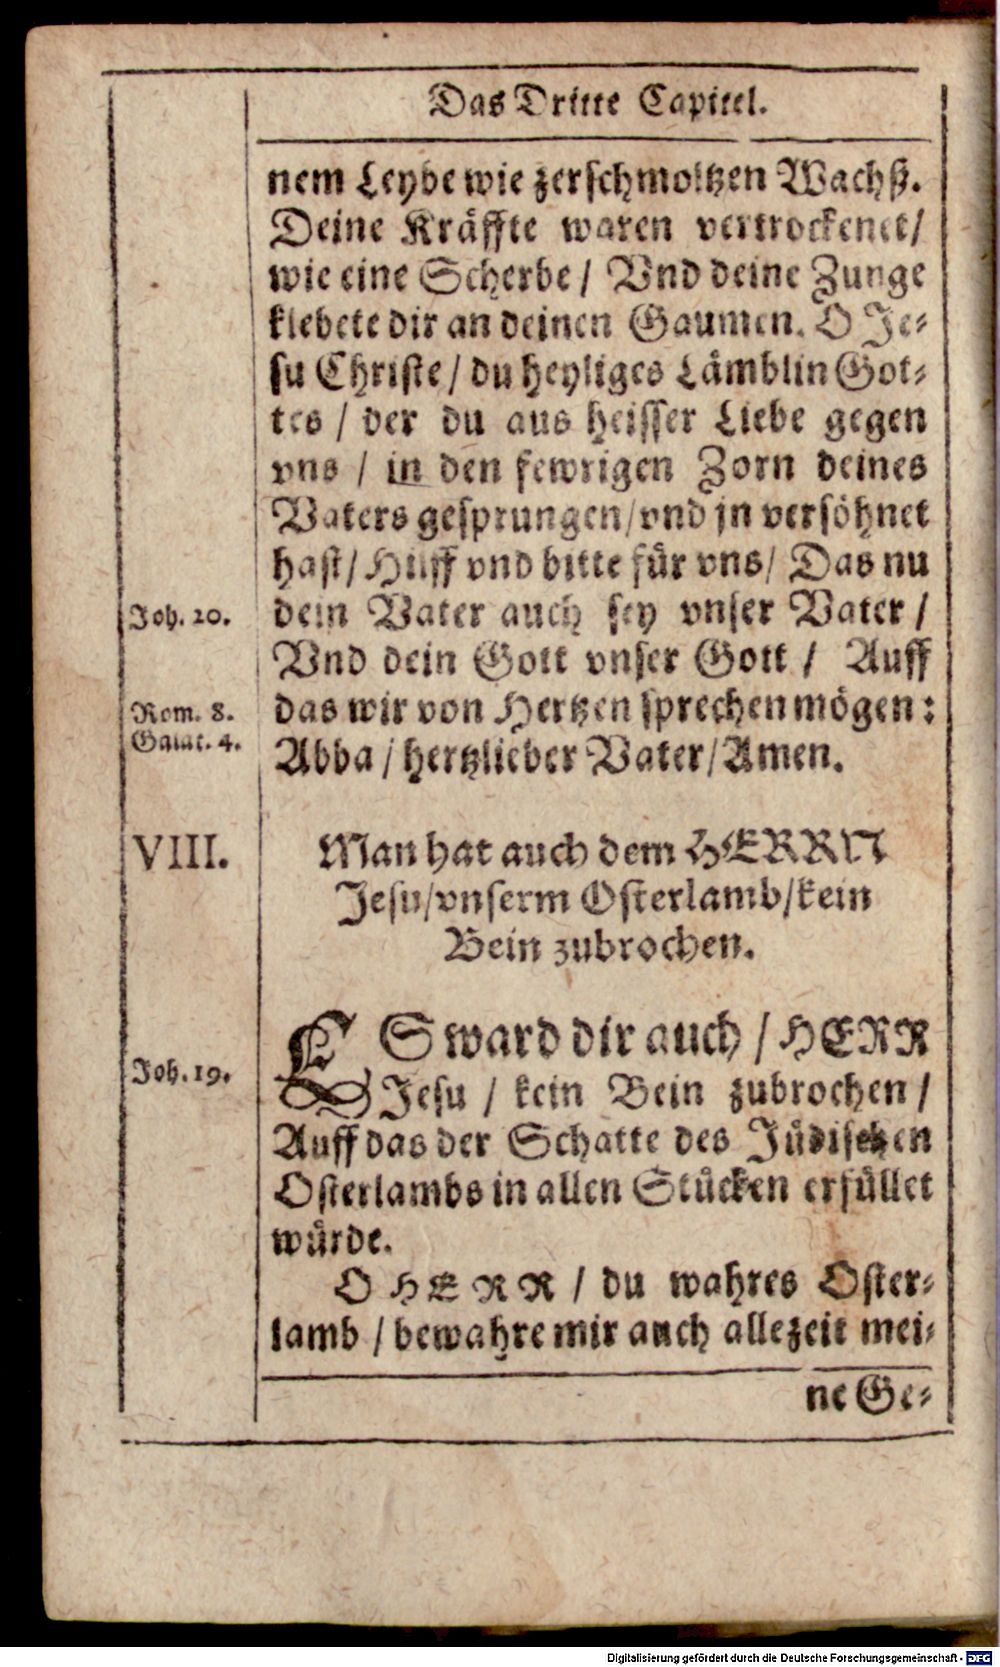 Das Dritte Capitel.
nem Leybe wie zerschmoltzen Wachß.
Deine Kräffte waren vertrockenet/
wie eine Scherbe / Vnd deine Zunge
klebete dir an deinen Gaumen. O Je-
su Christe / du heyliges Lämblin Got-
tes / der du aus heisser Liebe gegen
vns / in den fewrigen Zorn deines
Vaters gesprungen/vnd jn versöhnet
hast/ Hilff vnd bitte für vns/ Das nu
Joh. 20.
dein Vater auch sey vnser Vater /
Vnd dein Gott vnser Gott / Auff
Rom. 8.
das wir von Hertzen sprechen mögen:
Galat. 4.
Abba / hertzlieber Vater/Amen.
VIII.
Man hat auch dem HERRN
Jesu/vnserm Osterlamb/kein
Bein zubrochen.
ES ward dir auch / HERR
Joh. 19.
Jesu / kein Bein zubrochen /
Auff das der Schatte des Jüdischen
Osterlambs in allen Stücken erfüllet
würde.
O HERR / du wahres Oster-
lamb / bewahre mir auch allezeit mei-
ne Ge-
Digitalisierung gefördert durch die Deutsche Forschungsgemeinschaft - DFG